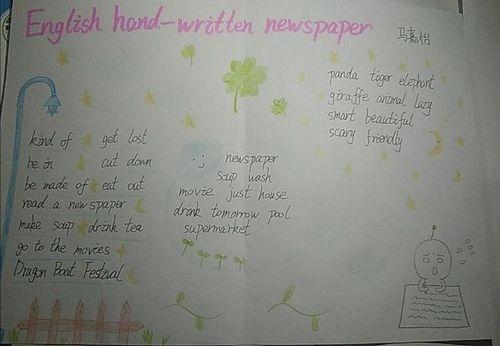 English hand-written newspaper
马嘉怡
panda tiger elephant
giraffe animal lazy
smart beautiful
scary friendly
kind of get lost
be in cut down
be made of eat out
read a newspaper
make soup drink tea
go to the movies
Dragon Boat Festival
newspaper
soup wash
movie just house
drink tomorrow pool
supermarket